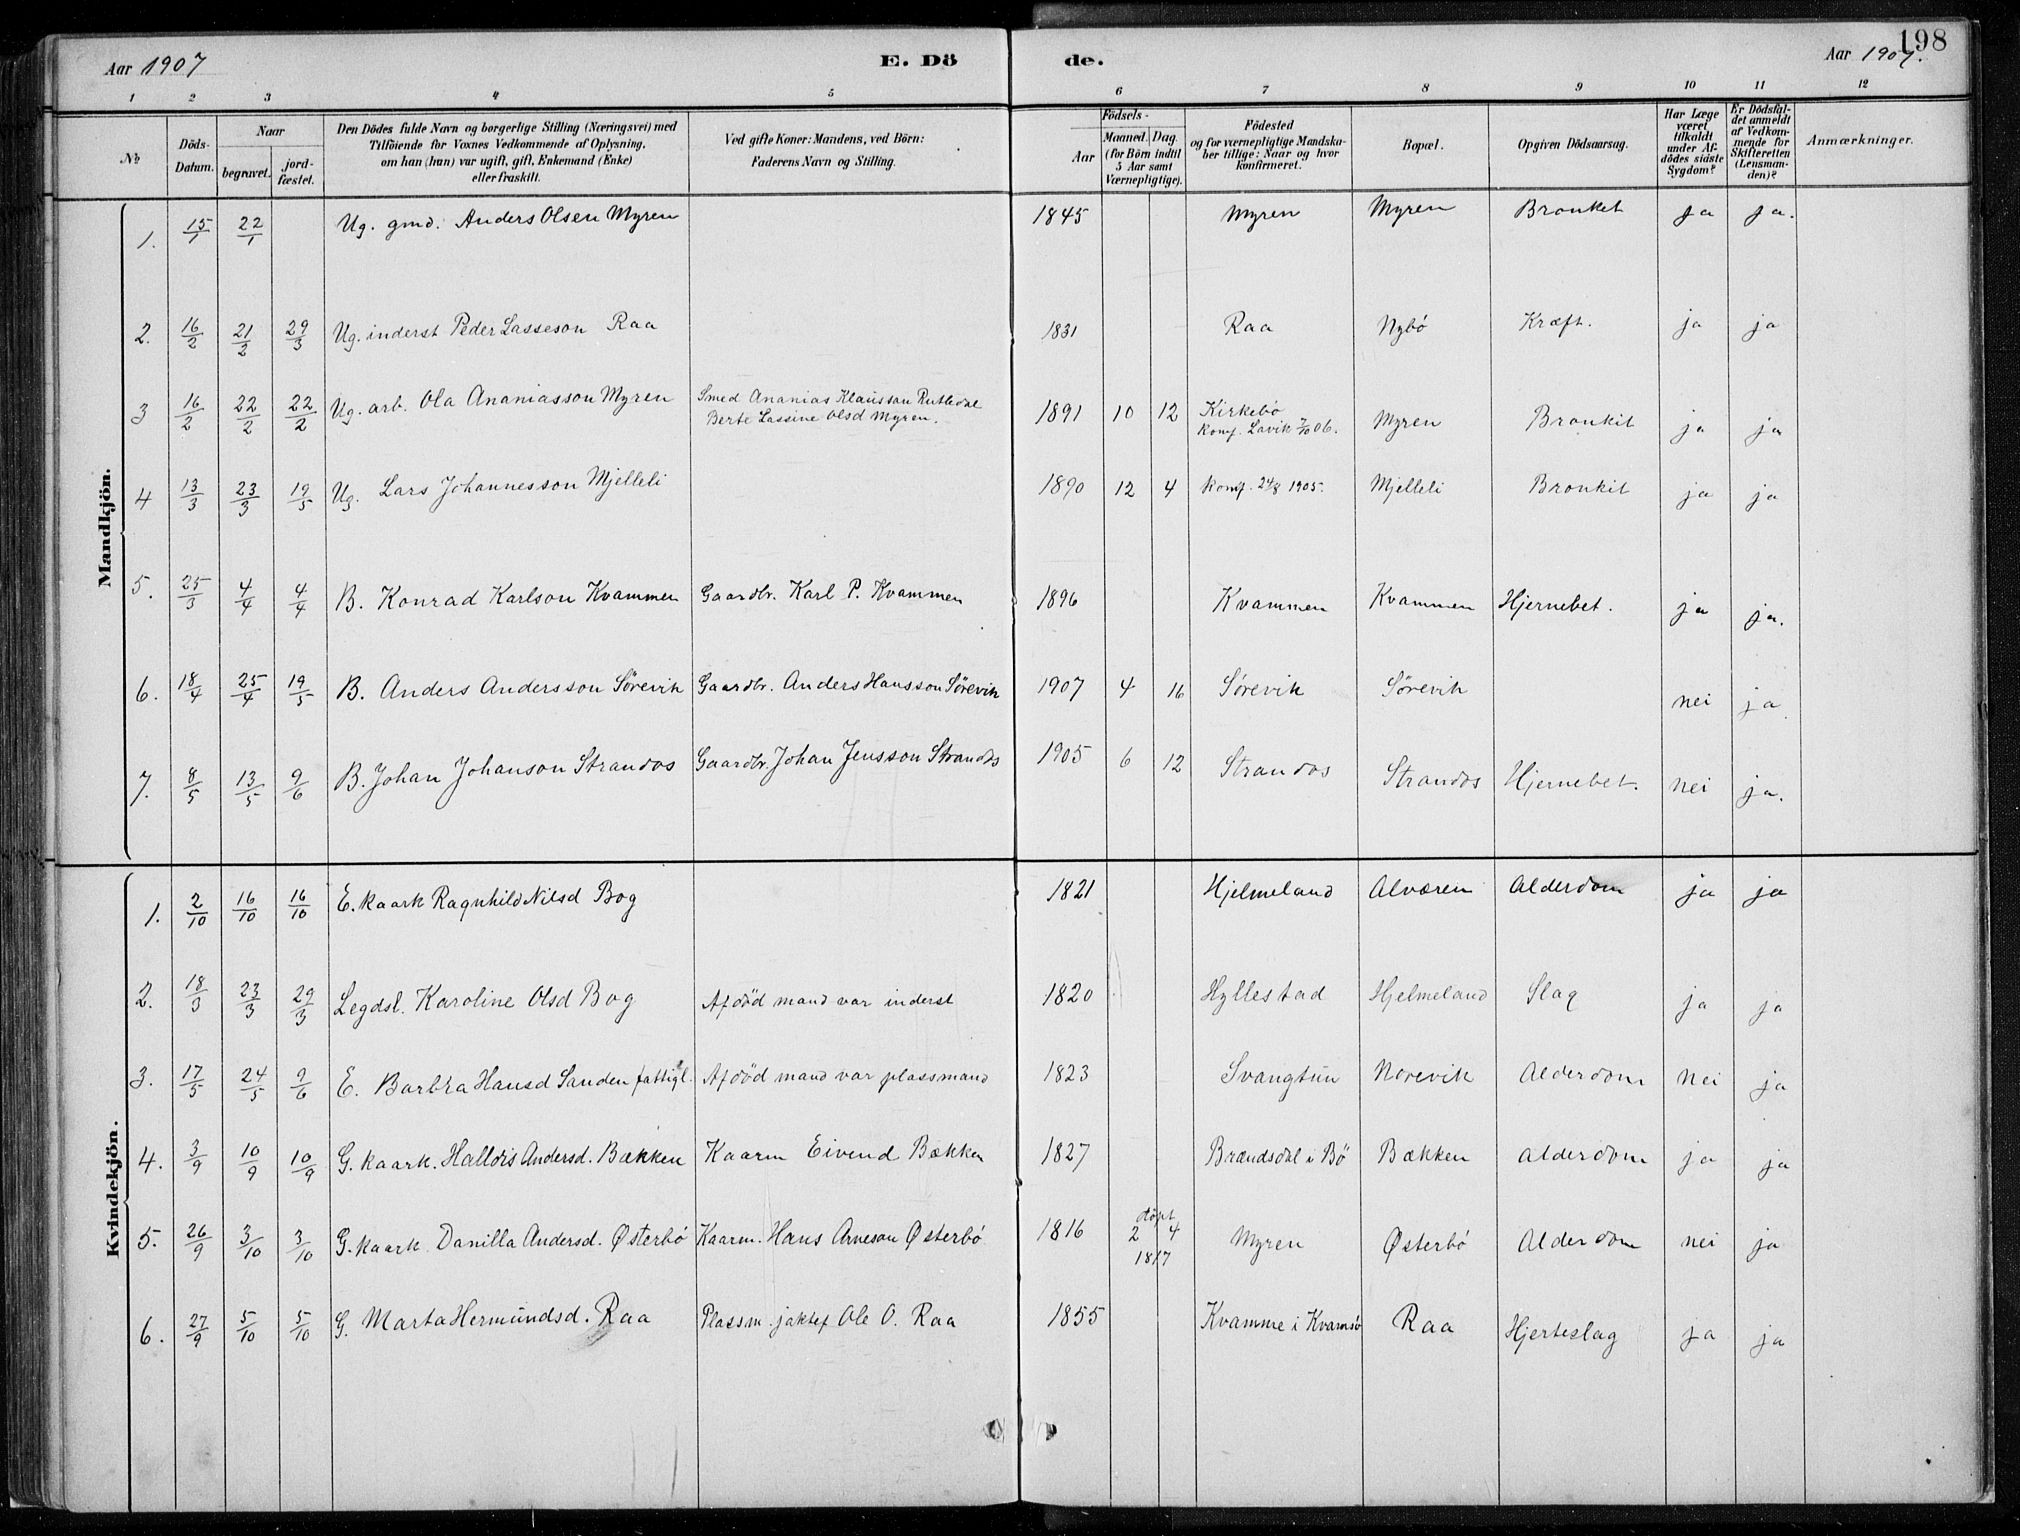 198
Aar 1907 E. Dö de. Aar 1907.
1 2 3 4 5 6 7 8 9 10 11 12
No
Döds-Datum.
Naar
begravet.
jord-fæstet.
Den Dödes fulde Navn og borgerlige Stilling (Næringsvei) med
Tilföiende for Voxnes Vedkommende af Oplysning,
om han (hun) var ugift, gift, Enkemand (Enke)
eller fraskilt.
Ved gifte Koner: Mandens, ved Börn:
Faderens Navn og Stilling.
Födsels-
Aar
Maaned. Dag.
(for Börn indtil
5 Aar samt
Værnepligtige).
Födested
og for værnepligtige Mandska-
ber tillige: Naar og hvor
konfirmeret.
Bopæl.
Opgiven Dödsaarsag.
Har Læge
været
tilkaldt
under Af-
dödes sidste
Sygdom?
Er Dödsfal-
det anmeldt
af Vedkom-
mende for
Skifteretten
(Lensman-
den)?
Anmærkninger.
Mandkjön.
1. 15/1 22/1 Ug. gmd. Anders Olsen Myren 1845 Myren Myren Bronket ja ja.
2. 16/2 21/2 29/3 Ug. inderst Peder Lasseson Raa 1831 Raa Nybø Kræft. ja ja
3 16/2 22/2 22/2 Ug. arb. Ola Ananiasson Myren Smed Ananias Klausson Rutledal
Berte Lassine Olsd Myren. 1891 10 12 Kirkebø
Konf. Lavik 7/10 06. Myren Bronkit ja ja
4 13/3 23/3 19/5 Ug. Lars Johannesson Mjelleli 1890 12 4 Konf. 24/8 1905. Mjelleli Bronkit ja ja
5. 25/3 4/4 4/4 B. Konrad Karlson Kvammen Gaardbr. Karl P. Kvammen 1896 Kvammen Kvammen Hjernebet. ja ja.
6. 18/4 25/4 19/5 B. Anders Andersson Sørevik Gaardbr. Anders Hansson Sørevik 1907 4 16 Sørevik Sørevik nei ja
7. 8/5 13/5 9/6 B. Johan Johanson Strandos Gaardbr. Johan Jensson Strandos 1905 6 12 Strandos Strandos Hjernebet. nei ja.
Kvindekjön.
1. 2/10 16/10 16/10 E. kaark Ragnhild Nilsd Bog 1821 Hjelmeland Alværen Alderdom ja ja
2. 18/3 23/3 29/3 Legdsl. Karoline Olsd Bog Afdød mand var inderst 1820 Hyllestad Hjelmeland Slag ja ja
3. 17/5 24/5 9/6 E. Barbra Hansd Sanden fattigl. Afdød mand var plassmand 1823 Svangtun Norevik Alderdom nei ja
4. 3/9 10/9 10/9 G. kaark. Halldis Andersd. Bækken Kaarm Eivend Bækken 1827 Brændsdal i Bø Bækken Alderdom ja ja
5. 26/9 3/10 3/10 G. kaark Danilla Andersd. Østerbø Kaarm. Hans Arneson Østerbø 1816 døpt
2 4
1817 Myren Østerbø Alderdom nei ja
6. 27/9 5/10 5/10 G. Marta Hermundsd. Raa Plassm. jaktef Ole O. Raa 1855 Kvamme i Kvamsø Raa Hjerteslag ja ja